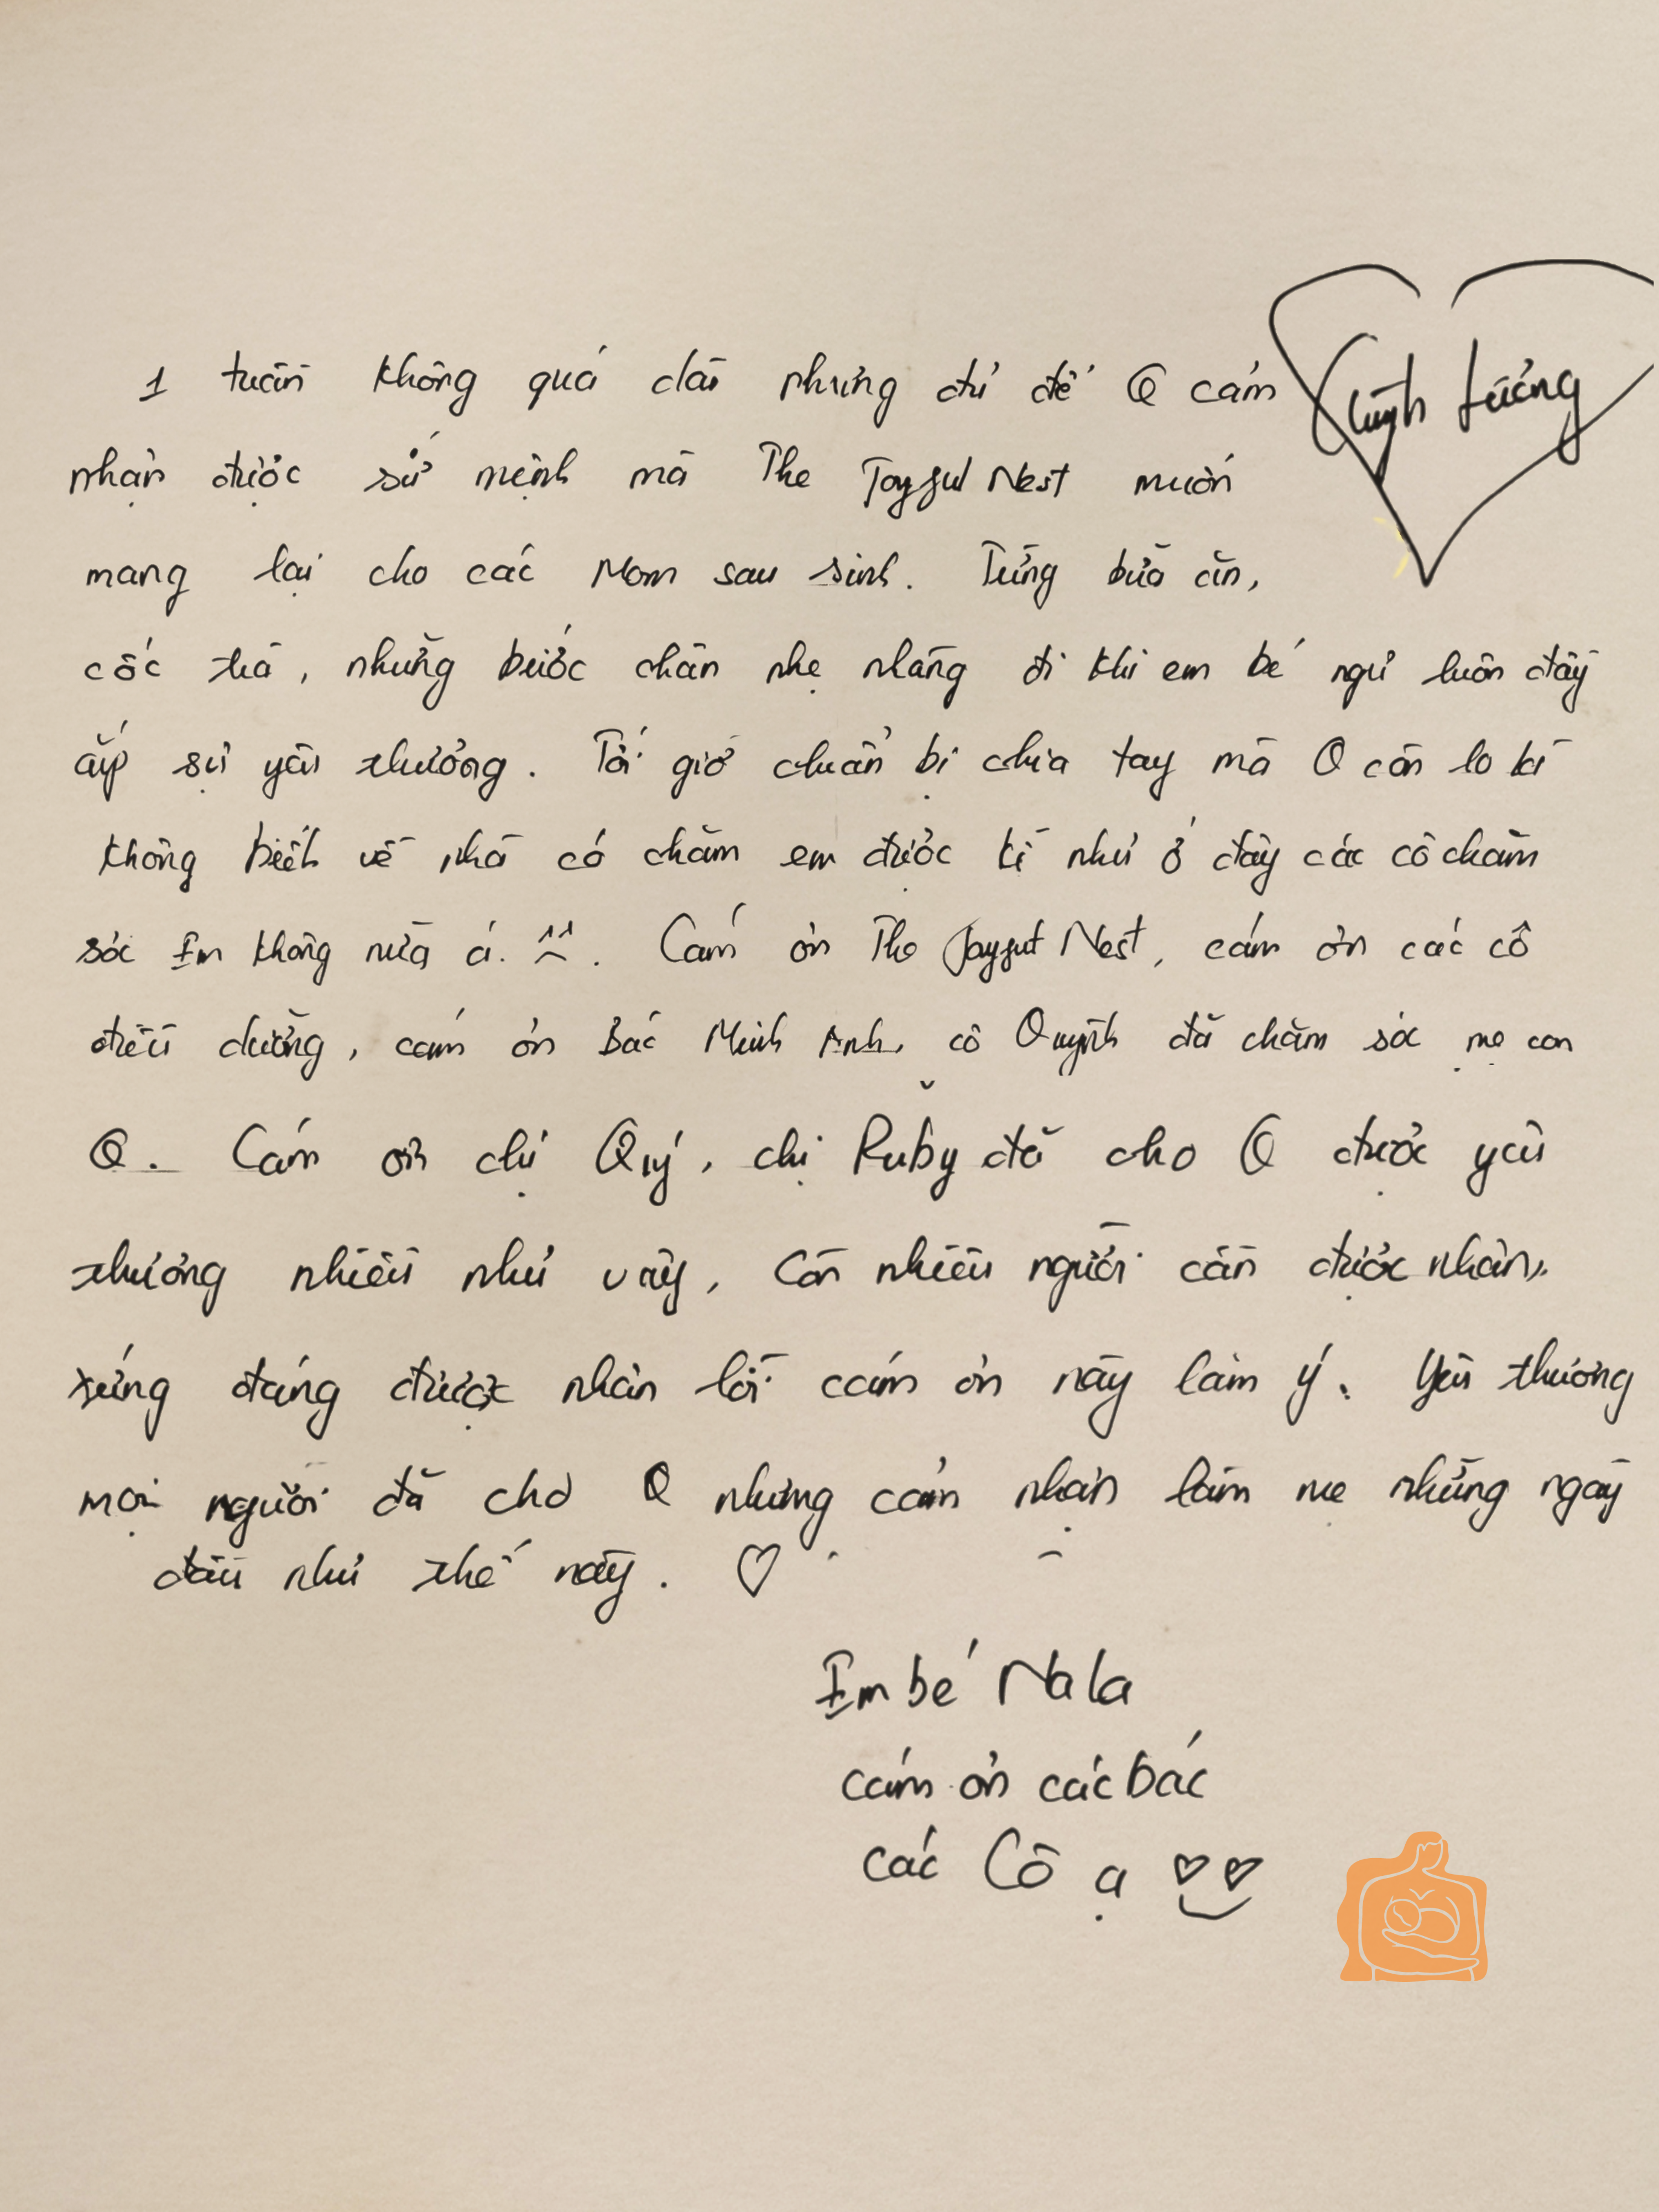 Quỳnh Lương
1 tuần không quá dài nhưng đủ để Q cảm
nhận được sứ mệnh mà The Joyful Nest muốn
mang lại cho các Mom sau sinh. Từng bữa ăn,
cốc trà, những bước chân nhẹ nhàng đi khi em bé ngủ luôn đầy
ắp sự yêu thương. Tới giờ chuẩn bị chia tay mà Q còn lo kì
không biết về nhà có chăm em được kĩ như ở đây các cô chăm
sóc Em không nữa á. Cám ơn The Joyful Nest, cám ơn các cô
điều dưỡng, cám ơn Bác Minh Anh, cô Quỳnh đã chăm sóc mẹ con
Q. Cám ơn chị Quý, chị Ruby đã cho Q được yêu
thương nhiều như vậy, Còn nhiều người cần được nhận,
xứng đáng được nhận lời cám ơn này lắm ý. Yêu thương
mọi người đã cho Q những cảm nhận làm mẹ những ngày
đầu như thế này. ♡
Em bé Nala
cám ơn các bác
các Cô ạ